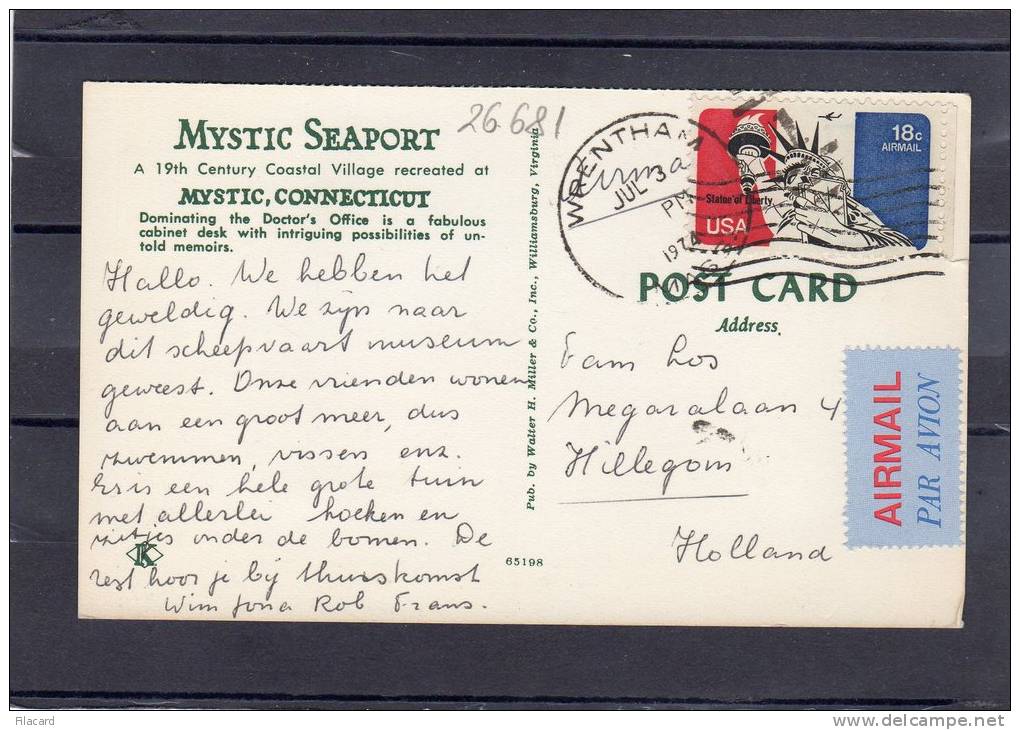 MYSTIC SEAPORT
A 19th Century Coastal Village recreated at
MYSTIC, CONNECTICUT
Dominating the Doctor's Office is a fabulous
cabinet desk with intriguing possibilities of un-
told memoirs.
Hallo. We hebben het
geweldig. We zijn naar
dit scheepvaart museum
geweest. Onze vrienden wonen
aan een groot meer, dus
zwemmen, vissen enz.
Er is een hele grote tuin
met allerlei hoeken en
zitjes onder de bomen. De
rest hoor je bij thuiskomst
Wim Rob Frans.
K
26.681
Pub. by Walter H. Miller & Co., Inc., Williamsburg, Virginia
65198
WRENTHAM
JUL 3
PM
1974
MASS
18c
AIRMAIL
Statue of Liberty
USA
POST CARD
Address
Fam Los
Megaralaan 4
Hillegom
Holland
AIRMAIL
PAR AVION
Filacard
www.delcampe.net